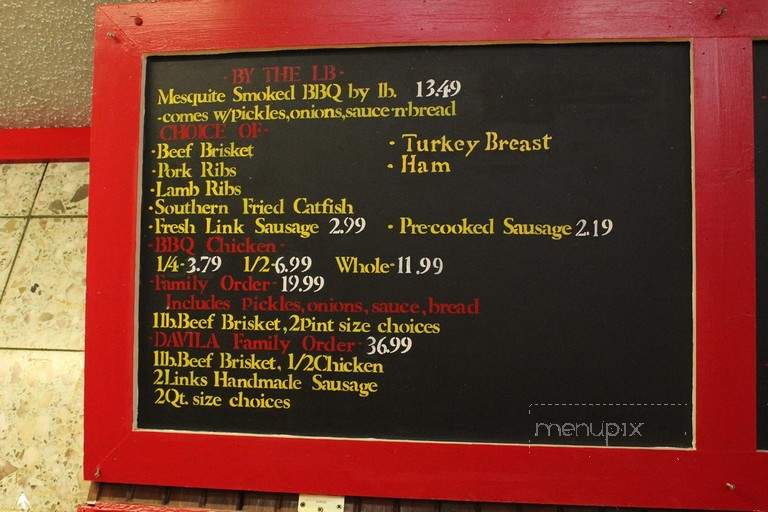 -BY THE LB-
Mesquite Smoked BBQ by lb. 13.49
-comes w/pickles,onions,sauce-n-bread
CHOICE OF-
-Beef Brisket
-Pork Ribs
-Lamb Ribs
-Southern Fried Catfish
-Fresh Link Sausage 2.99
- Turkey Breast
- Ham
- Pre-cooked Sausage 2.19
-BBQ Chicken-
1/4-3.79 1/2-6.99 Whole-11.99
-Family Order- 19.99
Includes pickles,onions,sauce,bread
1lb.Beef Brisket,2Pint size choices
-DAVILA Family Order- 36.99
1lb.Beef Brisket, 1/2Chicken
2Links Handmade Sausage
2Qt. size choices
menupix